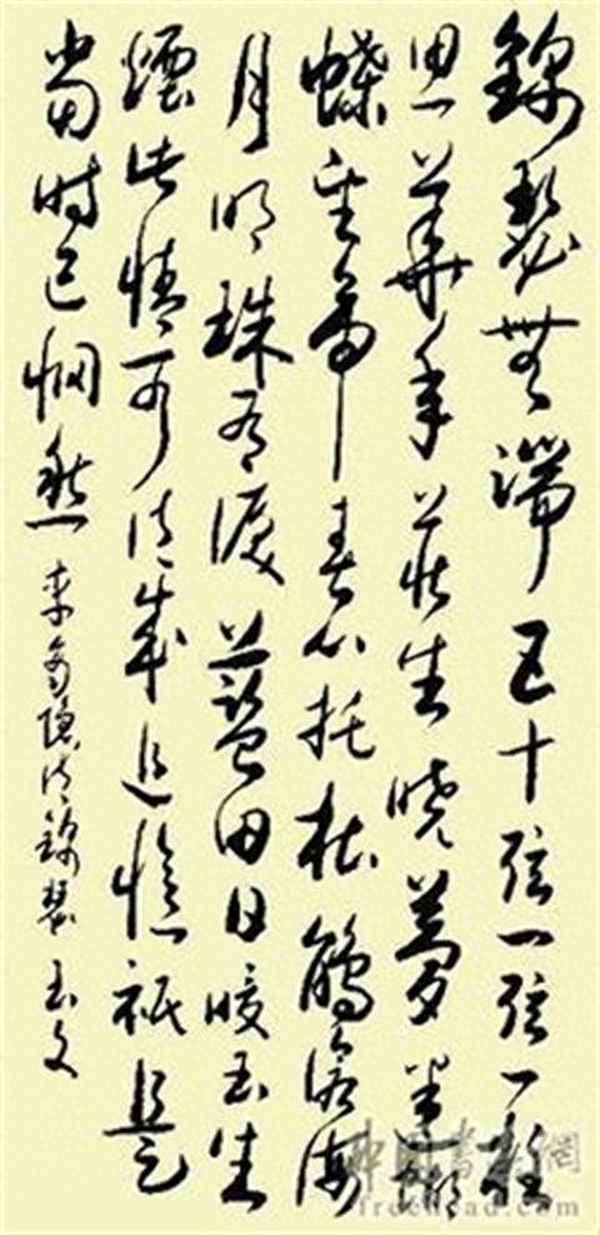 錦瑟無端五十弦一弦一柱
思華年莊生曉夢迷蝴
蝶望帝春心托杜鵑滄海
月明珠有淚藍田日暖玉生
煙此情可待成追憶祗是
當時已惘然
李商隱詩錦瑟 玉文